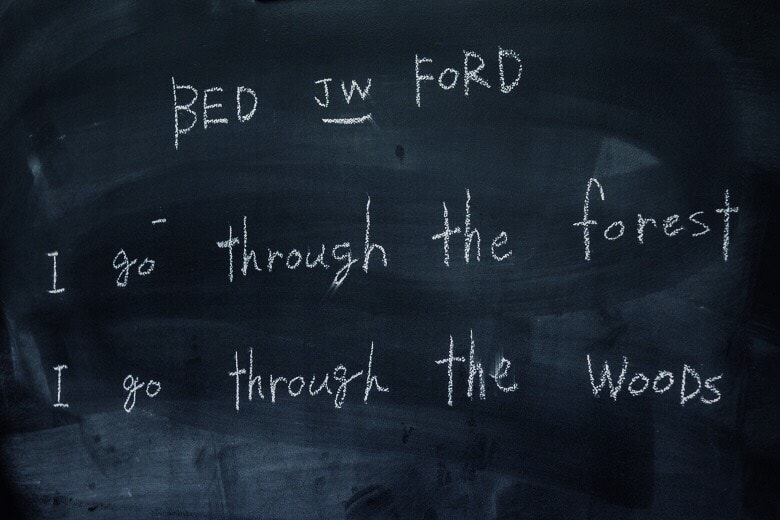 BED JW FORD
I go through the forest
I go through the WOODS